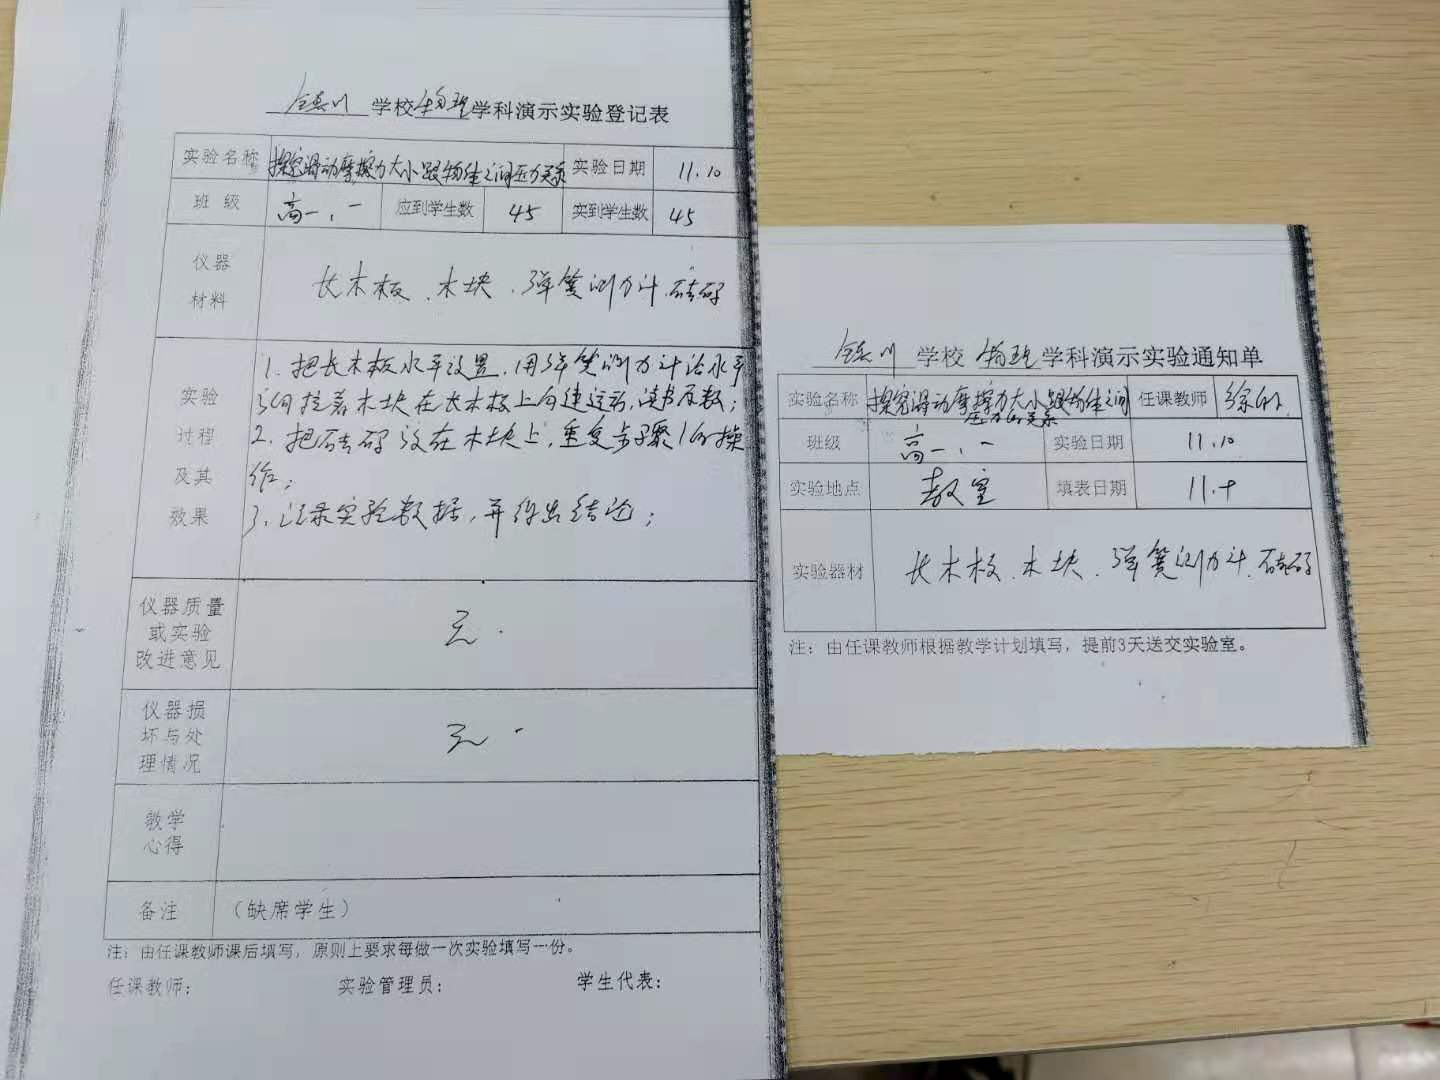 学校物理学科演示实验登记表
实验名称 探究滑动摩擦力大小跟物体之间压力关系 实验日期 11.10
班 级 高一、一 应到学生数 45 实到学生数 45
仪器
材料
长木板、木块、弹簧测力计、砝码
实验
过程
及其
效果
1、把长木板水平设置,用弹簧测力计沿水平
方向拉着木块在长木板上匀速运动,读出示数;
2、把砝码放在木块上,重复步骤1的操
作;
3、记录实验数据,并得出结论;
仪器质量
或实验
改进意见
无.
仪器损
坏与处
理情况
无.
教学
心得
备注 (缺席学生)
注:由任课教师课后填写,原则上要求每做一次实验填写一份。
任课教师: 实验管理员: 学生代表:
学校 物理学科演示实验通知单
实验名称 探究滑动摩擦力大小跟物体之间
压力的关系
任课教师
班级 高一、一 实验日期 11.10
实验地点 教室 填表日期 11.
实验器材 长木板、木块、弹簧测力计、砝码
注:由任课教师根据教学计划填写,提前3天送交实验室。